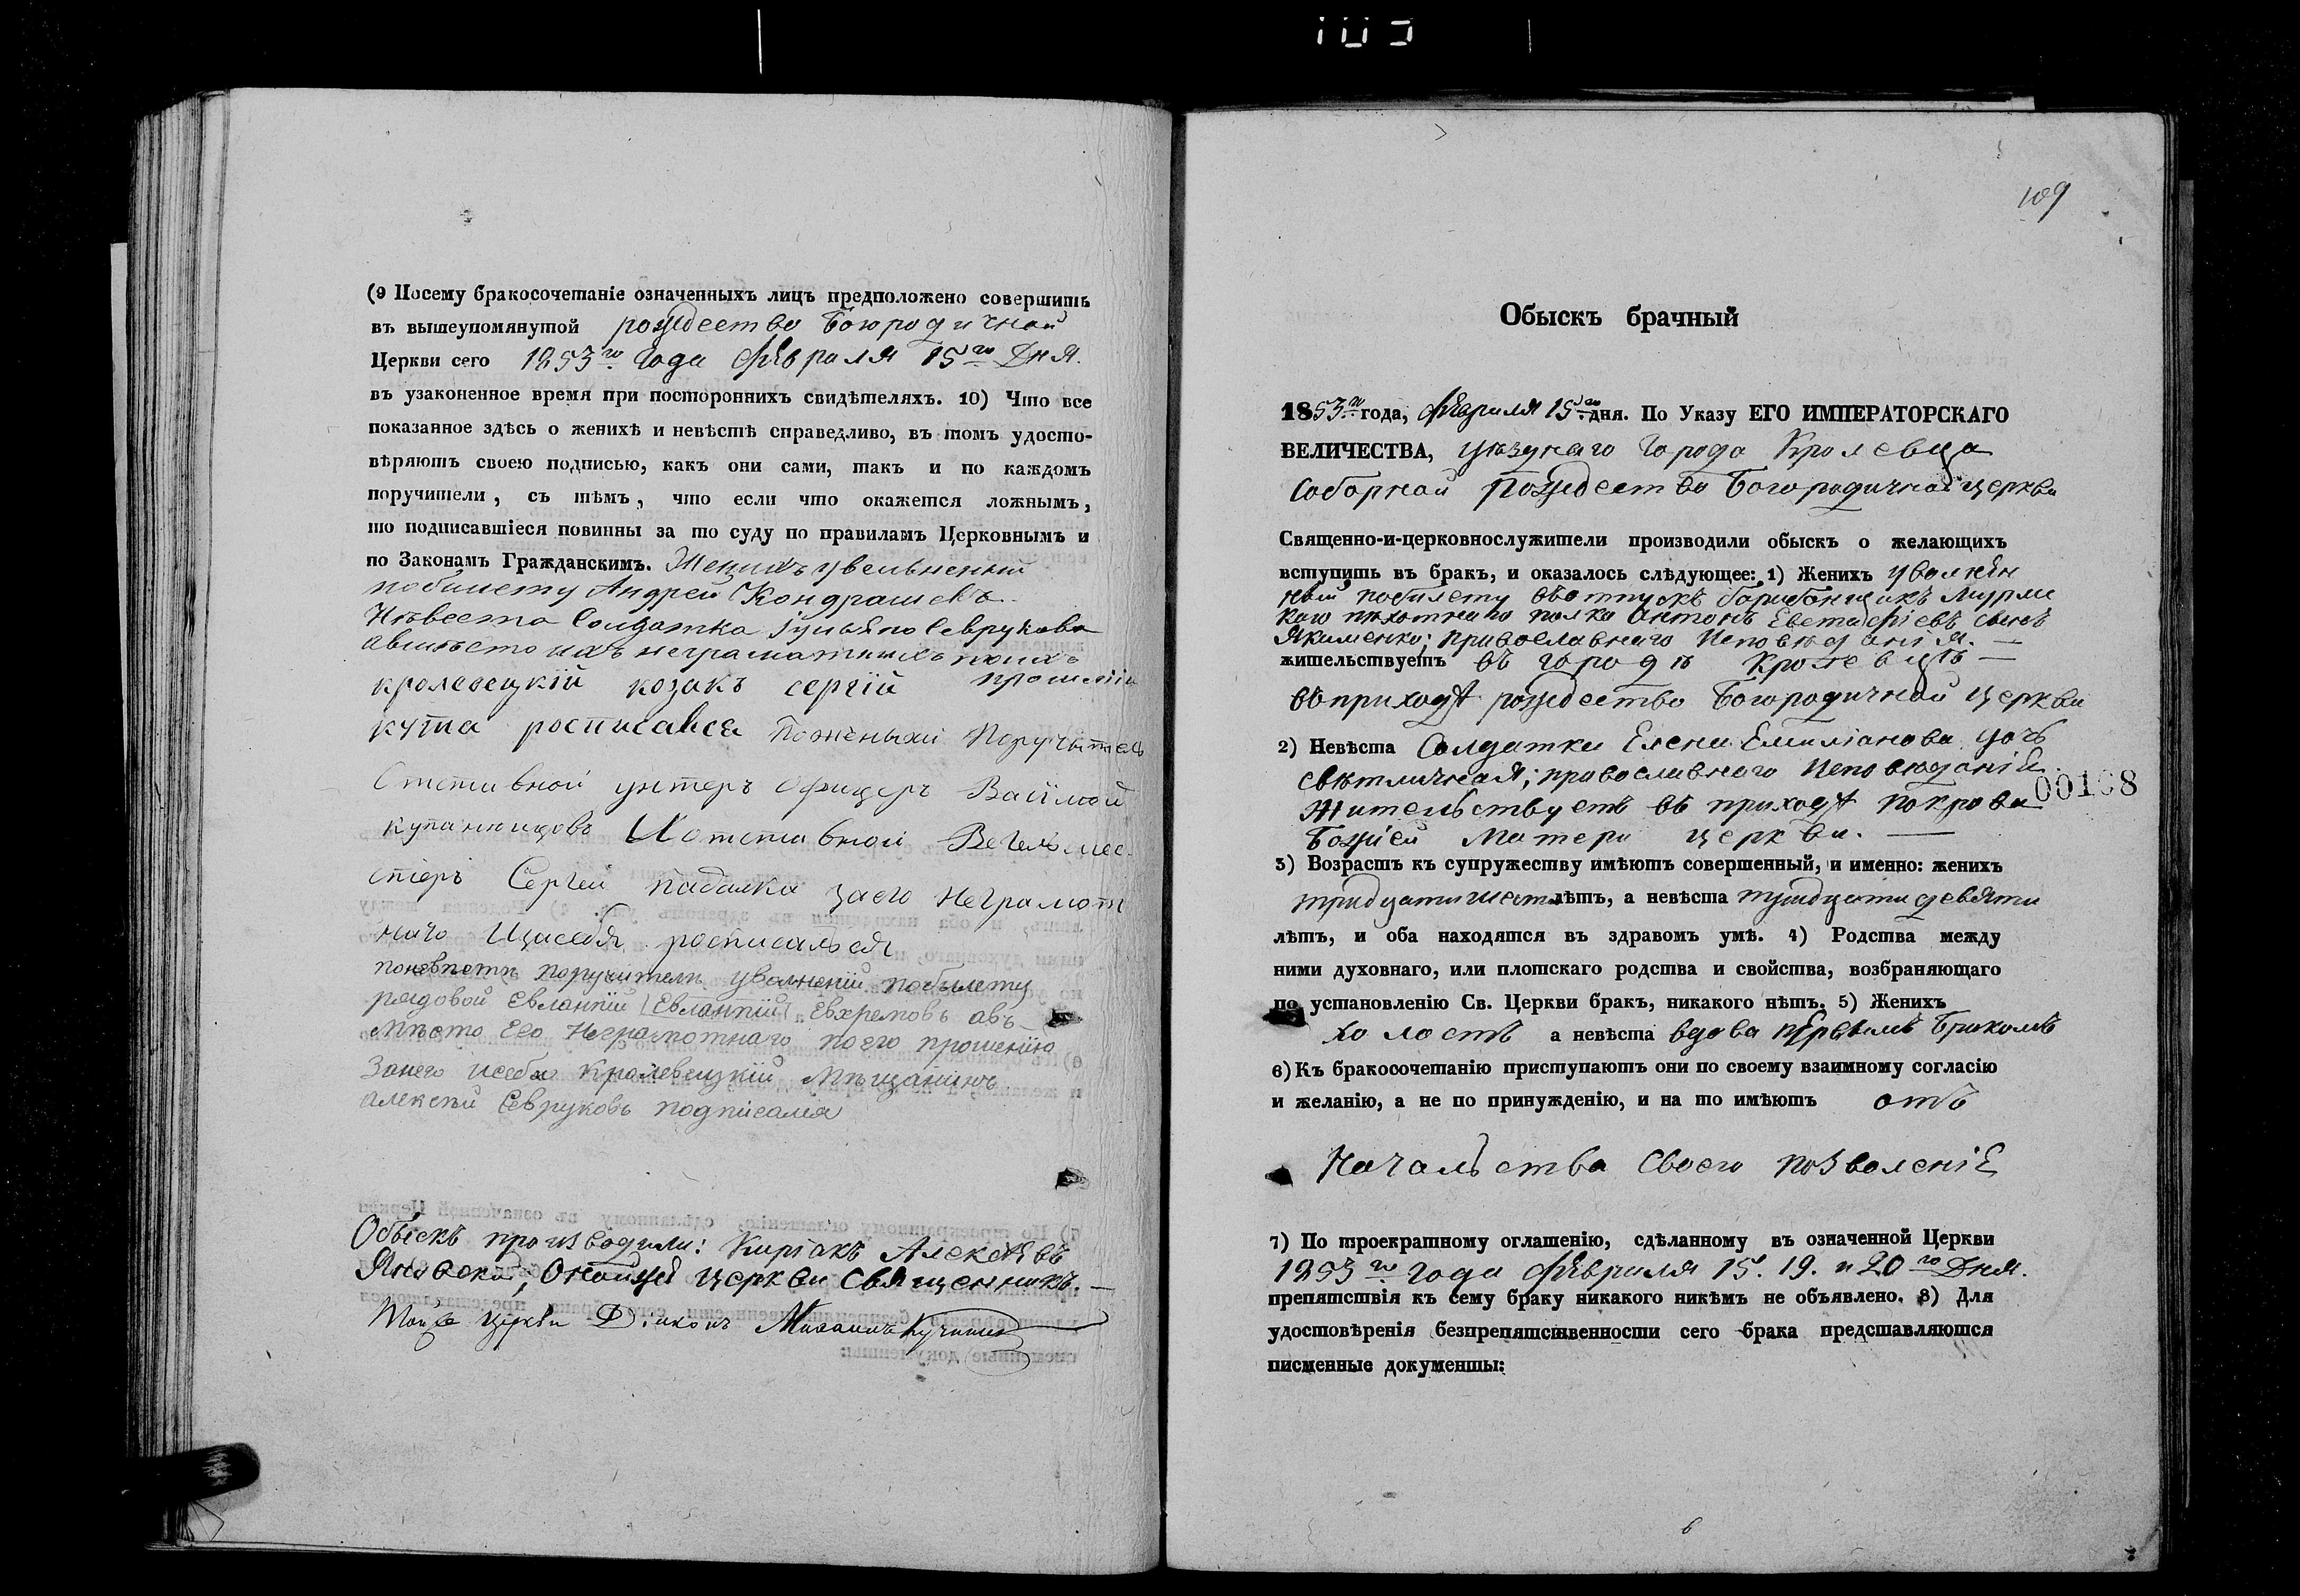 (9 Посему бракосочетаніе означенныхъ лицъ предположено совершить
въ вышеупомянутой рождество Богородичной
Церкви сего 1853го года февраля 15го Дня.
въ узаконенное время при постороннихъ свидѣтеляхъ. 10) Что все
показанное здѣсь о женихѣ и невѣстѣ справедливо, въ томъ удосто-
вѣряютъ своею подписью, какъ они сами, такъ и по каждомъ
поручители, съ тѣмъ, что если что окажется ложнымъ,
то подписавшіеся повинны за то суду по правиламъ Церковнымъ и
по Законамъ Гражданскимъ. Женихъ увольненый
побилету Андрей Кондрашевъ
Нѣвеста Солдатка Севрукова
авместо ихъ неграматныхъ поихъ
прошенію
кролевецкій козакъ сергій
кута росписався Поженыхи Поручитель
Отставной унтеръ офицеръ
Иотставной
Сергей падалка заего Неграмот
наго Изасебя росписался
поневѣсти поручитель уволненій побилету
рядовой Евлампій (Евлампій) Евхремовъ авъ
мѣсто Его Неграмотнаго поего прошенію
Занего исебя Кролевецкій Мѣщанинъ
алексѣй Севруковъ подписался
Обыскъ производили: Киріакъ Алексѣевъ
Яновскій, Онойжѣ церкви Священникъ.
Тойже церкви Діаконъ Михаилъ
109
Обыскъ брачный
1853го года, февраля 15го дня. По Указу ЕГО ИМПЕРАТОРСКАГО
ВЕЛИЧЕСТВА, уѣзднаго города Кролевца
Соборной Рождество Богородичной церкви
Священно-и-церковнослужители производили обыскъ о желающихъ
вступить въ бракъ, и оказалось слѣдующее: 1) Женихъ уволнѣн
ный побилету вотпускъ барабанщикъ Муром
каго пѣхотнаго полка Антонъ Евстафіевъ сынъ
Якименко; православнаго Исповѣданія. —
жительствуетъ въ городѣ Кролевцѣ —
въ приходѣ рождество Богородичной церкви
2) Невѣста Солдатка Елена Емиліанова дочь
свѣтличная; православнаго Исповѣданіе.
00108
Жительствуетъ въ приходѣ покрова
Божіей Матери церкви. —
3) Возрастъ къ супружеству имѣютъ совершенный, и именно: женихъ
тридцати шест лѣтъ, а невѣста тридцати девяти
лѣтъ, и оба находятся въ здравомъ умѣ. 4) Родства между
ними духовнаго, или плотскаго родства и свойства, возбраняющаго
по установленію Св. Церкви бракъ, никакого нѣтъ. 5) Женихъ
холостъ а невѣста вдова пѣрвымъ бракомъ
6) Къ бракосочетанію приступаютъ они по своему взаимному согласію
и желанію, а не по принужденію, и на то имѣютъ отъ
Начальства своего позволеніе
7) По троекратному оглашенію, сдѣланному въ означенной Церкви
1853го года февраля 15. 19. и 20го Дня.
препятствія къ сему браку никакого никѣмъ не объявлено. 8) Для
удостовѣренія безпрепятственности сего брака представляются
писменные документы: